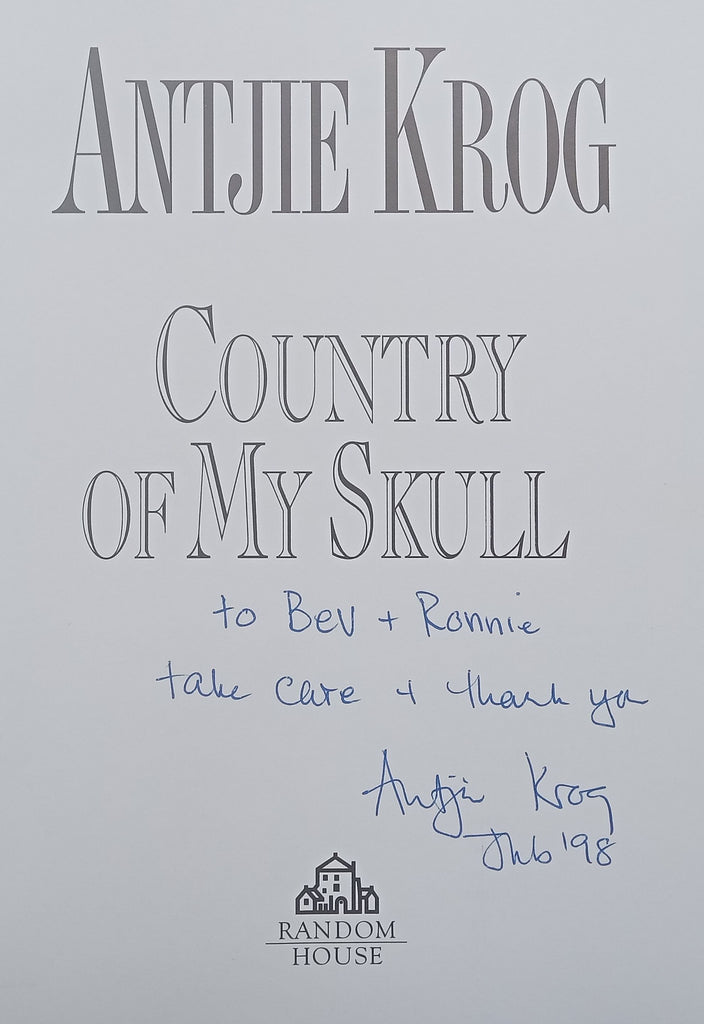 ANTJIE KROG
COUNTRY
OF MY SKULL
to Bev + Ronnie
take care + thank you
Antjie Krog
Jhb '98
RANDOM
HOUSE